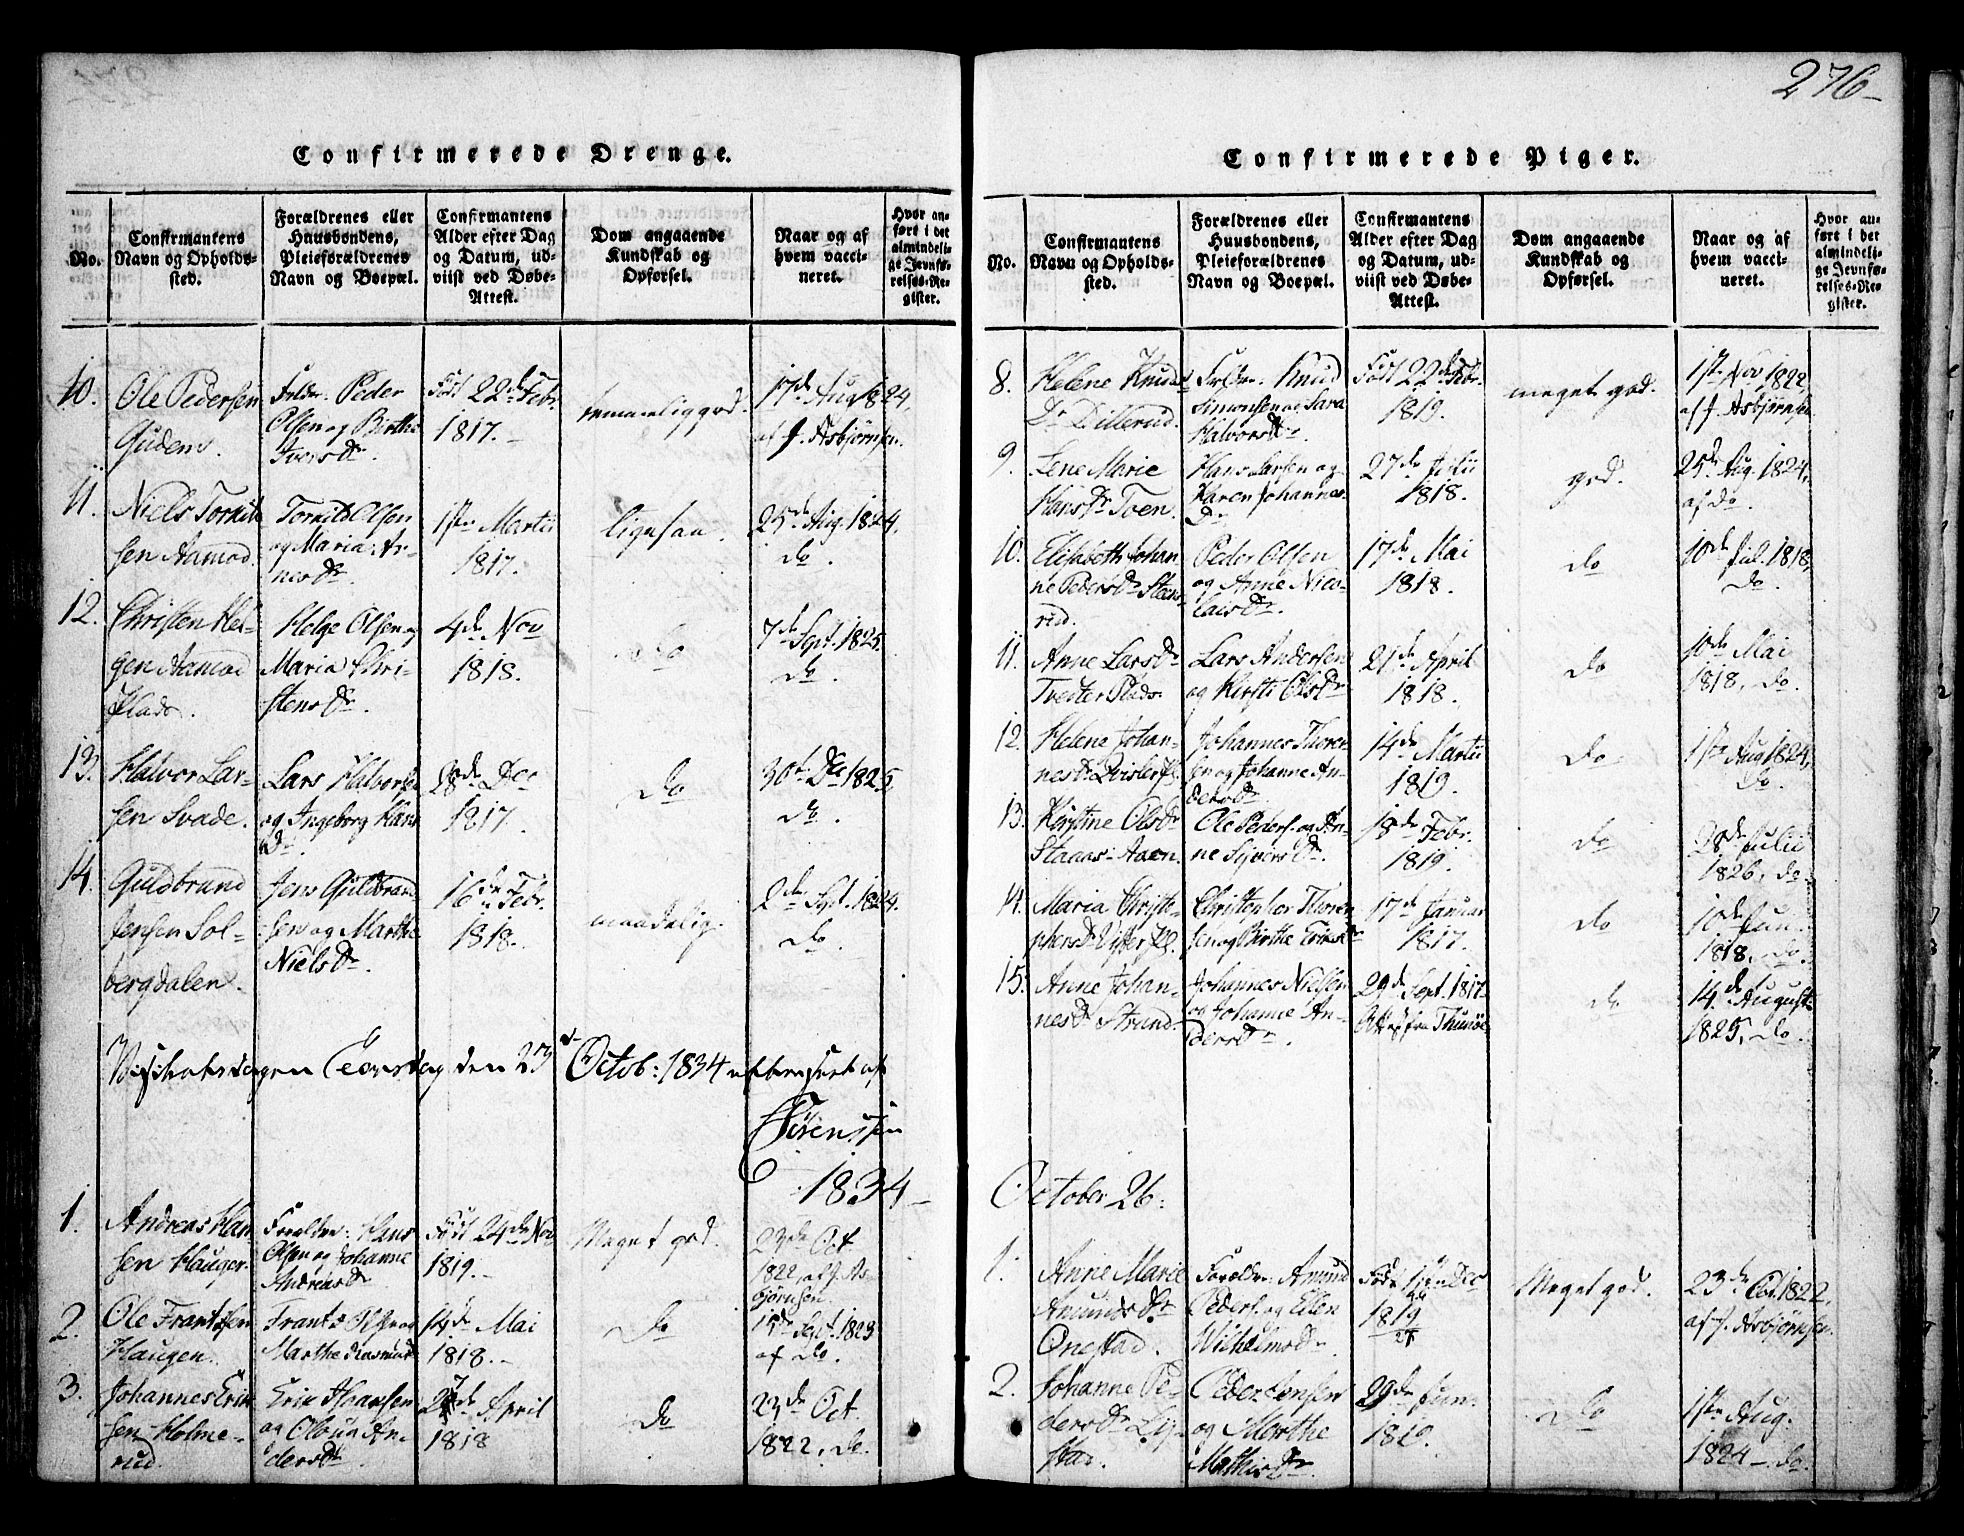 276
Confirmerede Drenge.
No.
Confirmantens Navn og Opholds-sted.
Forældrenes eller Huusbondens, Pleieforældrenes Navn og Boepæl.
Confirmantens Alder efter Dag og Datum, ud-viist ved Døbe-Attest.
Dom angaaende Kundskab og Opførsel.
Naar og af hvem vacci-neret.
Hvor an-ført i det almindeli-ge Jevnfø-relses-Re-gister.
10.
Ole Pedersen
Gudem.
Forældr: Peder
Olsen og Birthe
Ivers Dr.
Født 22de Febr.
1817.
temmelig god.
17de Aug 1824,
af J. Asbjørnsen.
11.
Niels Tornild
sen Aamod.
Tornild Olsen
og Maria Ar-
nes Dr.
1ste Martii
1817.
ligesaa.
25de Aug. 1824,
do.
12.
Christen Hel-
gen Aamod
Plads.
Helge Olsen og
Maria Chri-
stens Dr.
4de Nov
1818.
do
7de Sept. 1825.
do.
13.
Halvor Lar-
sen Svade.
Lars Halvorsen
og Ingeborg Hans
Dr.
28de Dec
1817.
do
30te Dec 1825,
do.
14.
Guldbrand
Jensen Sol-
bergdalen.
Jens Guldbrand
sen og Marthe
Niels Dr.
16de Febr.
1818.
maadelig.
2de Sept. 1824.
do.
den 23 Octob: 1834 af
Sørenssen
1834
1.
Andreas Han
sen Hauger.
Forældre: Hans
Olsen og Johanne
Andreas Dr
Født 24de Nov
1819.
Meget god.
23de Oct.
1822, af J. As-
bjørnsen.
2.
Ole Frantssen
Haugen.
Frants Olsen og
Marthe Rasmus
14de Mai
1818.
Do
15de Sept. 1823
af Do.
3.
Johannes Erik
sen Holme-
rud.
Erik Haansen
og Olava An-
ders Dr
April
1818
Do
23de Oct.
1822, do.
Confirmerede Piger.
No.
Confirmantens Navn og Opholds-sted.
Forældrenes eller Huusbondens, Pleieforældrenes Navn og Boepæl.
Confirmantens Alder efter Dag og Datum, ud-viist ved Døbe-Attest.
Dom angaaende Kundskab og Opførsel.
Naar og af hvem vacci-neret.
Hvor an-ført i det almindeli-ge Jevnfø-relses-Re-gister.
8.
Helene Knuds
Dr Dillerud.
Forældr: Knud
Simonsen og Sara
Halvors Dr.
Født 22de Febr.
1819.
meget god.
1ste Nov 1822,
af J. Asbjørnsen
9.
Lene Marie
Hans Dr Toen.
Hans Larsen og
Karen Johannes-
Dr
27de Julii
1818.
god.
25de Aug. 1824,
af do
10.
Elisabeth Johan-
ne Peders Dr Steens-
rud.
Peder Olsen
og Anne Nico-
lais Dr.
17de Mai
1818.
do
10de Jul. 1818,
do.
11.
Anne Lars Dr
Tvedter Plads.
Lars Andersen
og Kirsti Ols Dr
21de April
1818.
do
10de Mai
1818, do.
12.
Helene Johan-
nes Dr Qvisler Pl.
Johannes Thoren-
sen og Johanne An-
ders Dr
14de Martii
1819.
Do
1ste Aug 1824,
do.
13.
Kirstine Ols Dr
Staaas Aaen.
Ole Peders. og An-
ne Syvers Dr.
18de Febr.
1819.
do
28de Julii
1826, do.
14.
Maria Christo-
phers Dr Pl.
Christopher Thoren
sen og Birthe Eriks Dr
17de Januar
1817.
do
10de Jun.
1818, do.
15.
Anne Johan-
nes Dr Strand.
Johannes Nielsen
og Johanne An-
ders Dr.
29de Sept. 1817
Att. fra Thunøe
do
14de August
1825, do.
October 26.
1.
Anne Marie
Amunds Dr
Onestad.
Forældr: Amund
Peders. og Ellen
Wilhelms Dr.
Dec
1819
Meget god.
23de Oct. 1822,
af J. Asbjørnsen.
2.
Johanne Pe-
ders Dr Ly-
stad.
Peder Jensen
og Marthe
Mathis Dr
29de Jun.
1819.
Do
1ste Aug.
1824 do.